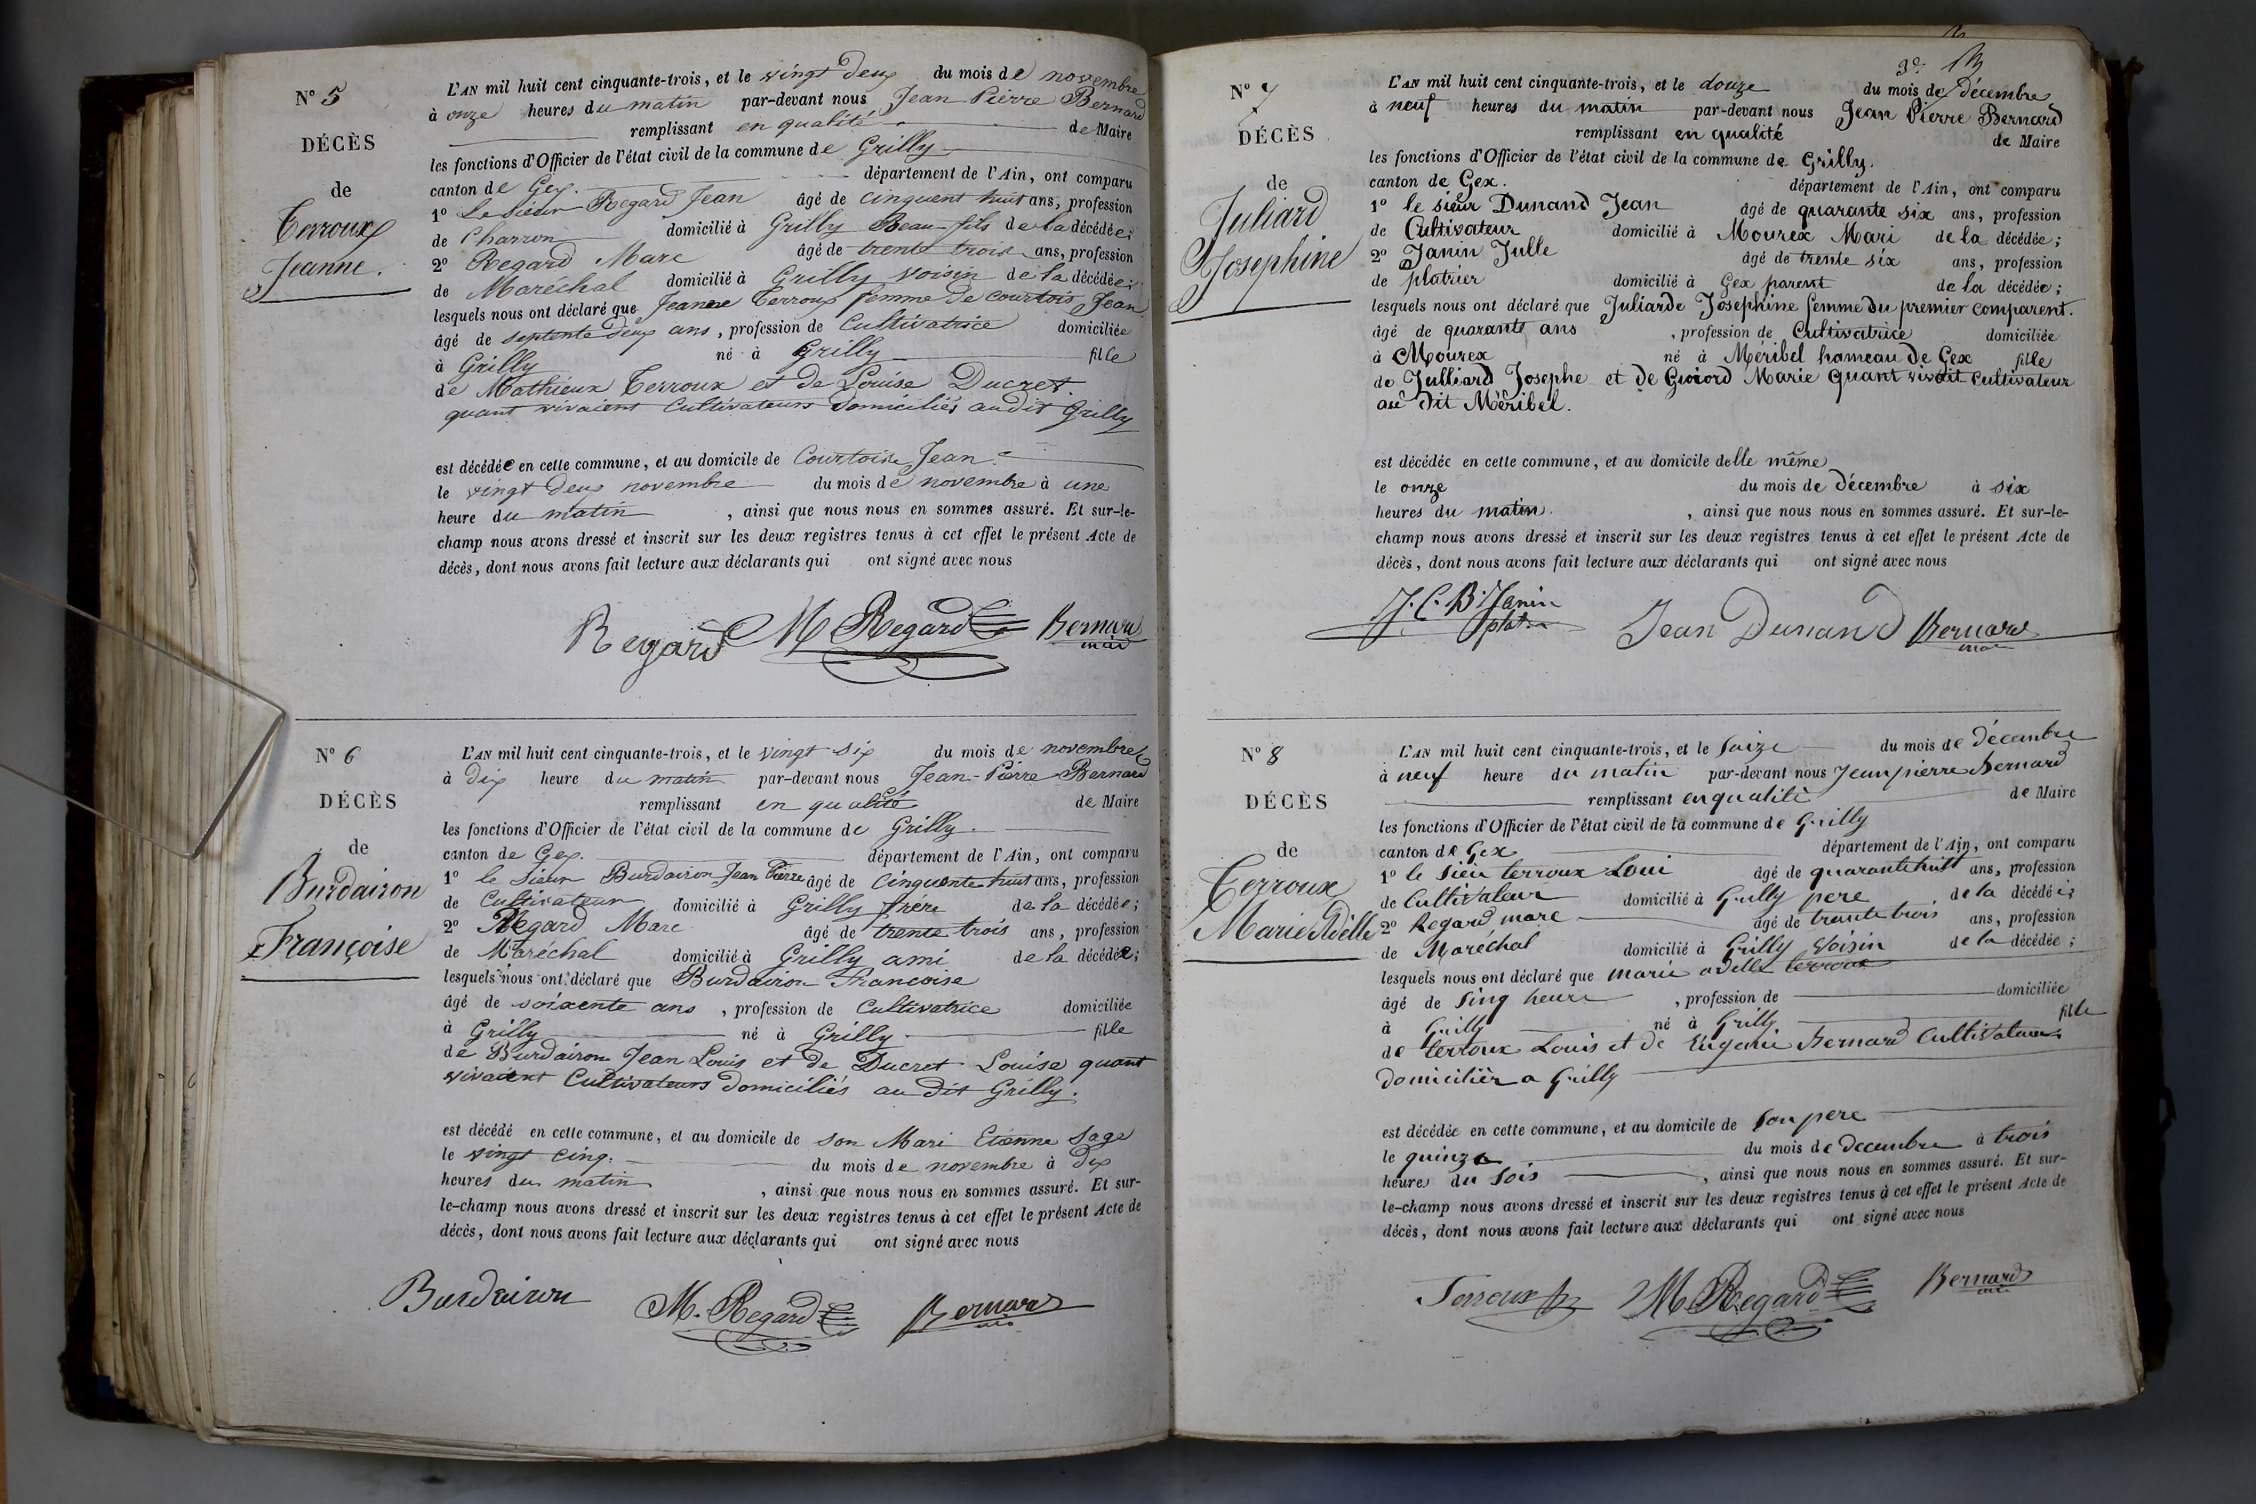 N° 5
DÉCÈS
de
Terroux
Jeanne.
L'AN mil huit cent cinquante-trois, et le vingt deux du mois de novembre
à onze heures du matin par-devant nous Jean Pierre Bernard
remplissant en qualité de Maire
les fonctions d'Officier de l'état civil de la commune de Grilly
canton de Gex. département de l'Ain, ont comparu
1° Le Sieur Regard Jean âgé de cinquent huit ans, profession
de Charron domicilié à Grilly Beau-fils de la décédée;
2° Regard Marc âgé de trente trois ans, profession
de Maréchal domicilié à Grilly voisin de la décédée;
lesquels nous ont déclaré que Jeanne Terroux femme de courtois Jean
âgé de septente deux ans, profession de Cultivatrice domiciliée
à Grilly né à Grilly fille
de Mathieux Terroux et de Louise Ducret.
quant vivaient Cultivateurs domiciliés audit Grilly
est décédée en cette commune, et au domicile de Courtois Jean
le vingt deux novembre du mois de novembre à une
heure du matin, ainsi que nous nous en sommes assuré. Et sur-le-
champ nous avons dressé et inscrit sur les deux registres tenus à cet effet le présent Acte de
décès, dont nous avons fait lecture aux déclarants qui ont signé avec nous
Regard M Regard Bernard
N° 6
DÉCÈS
de
Burdairon
Françoise
L'AN mil huit cent cinquante-trois, et le vingt six du mois de novembre
à dix heure du matin par-devant nous Jean-Pierre Bernard
remplissant en qualité de Maire
les fonctions d'Officier de l'état civil de la commune de Grilly.
canton de Gex. département de l'Ain, ont comparu
1° le Sieur Burdairon Jean Pierre âgé de Cinquente huit ans, profession
de Cultivateur domicilié à Grilly frere de la décédée;
2° Regard Marc âgé de trente trois ans, profession
de Maréchal domicilié à Grilly ami de la décédée;
lesquels nous ont déclaré que Burdairon Francoise
âgé de soixente ans, profession de Cultivatrice domiciliée
à Grilly né à Grilly fille
de Burdairon Jean Louis et de Ducret Louise quant
vivaient Cultivateurs domiciliés au dit Grilly.
est décédé en cette commune, et au domicile de son Mari Etienne Sage
le vingt cinq. du mois de novembre à dix
heures du matin, ainsi que nous nous en sommes assuré. Et sur-
le-champ nous avons dressé et inscrit sur les deux registres tenus à cet effet le présent Acte de
décès, dont nous avons fait lecture aux déclarants qui ont signé avec nous
Burdairon M. Regard Bernard
N° 7
DÉCÈS
de
Juliard
Josephine
L'AN mil huit cent cinquante-trois, et le douze du mois de décembre
à neuf heures du matin par-devant nous Jean Pierre Bernard
remplissant en qualité de Maire
les fonctions d'Officier de l'état civil de la commune de Grilly.
canton de Gex. département de l'Ain, ont comparu
1° le sieur Dunand Jean âgé de quarante six ans, profession
de Cultivateur domicilié à Mourex Mari de la décédée;
2° Janin Julle âgé de trente six ans, profession
de platrier domicilié à Gex parent de la décédée;
lesquels nous ont déclaré que Juliarde Josephine femme du premier comparent.
âgé de quarante ans, profession de Cultivatrice domiciliée
à Mourex né à Méribel hameau de Gex fille
de Julliard Josephe et de Marie quant vivait cultivateur
au dit Méribel.
est décédée en cette commune, et au domicile delle même
le onze du mois de décembre à six
heures du matin., ainsi que nous nous en sommes assuré. Et sur-le-
champ nous avons dressé et inscrit sur les deux registres tenus à cet effet le présent Acte de
décès, dont nous avons fait lecture aux déclarants qui ont signé avec nous
J. C. B. Janin Jean Dunand Bernard
N° 8
DÉCÈS
de
Terroux
Marie Adelle
L'AN mil huit cent cinquante-trois, et le saize du mois de décembre
à neuf heure du matin par-devant nous Jean pierre Bernard
remplissant en qualité de Maire
les fonctions d'Officier de l'état civil de la commune de Grilly
canton de Gex département de l'Ain, ont comparu
1° le sieu terroux Loui âgé de quarante huit ans, profession
de Cultivateur domicilié à Grilly pere de la décédée;
2° Regard marc âgé de trente trois ans, profession
de Maréchal domicilié à Grilly voisin de la décédée;
lesquels nous ont déclaré que marie adelle terroux
âgé de sinq heure, profession de domiciliée
à Grilly né à Grilly fille
de terroux Louis et de Eugenie Bernard Cultivateurs
domicilièr a Grilly
est décédée en cette commune, et au domicile de son pere
le quinze du mois de decembre à trois
heures du sois, ainsi que nous nous en sommes assuré. Et sur-
le-champ nous avons dressé et inscrit sur les deux registres tenus à cet effet le présent Acte de
décès, dont nous avons fait lecture aux déclarants qui ont signé avec nous
Terroux M Regard Bernard